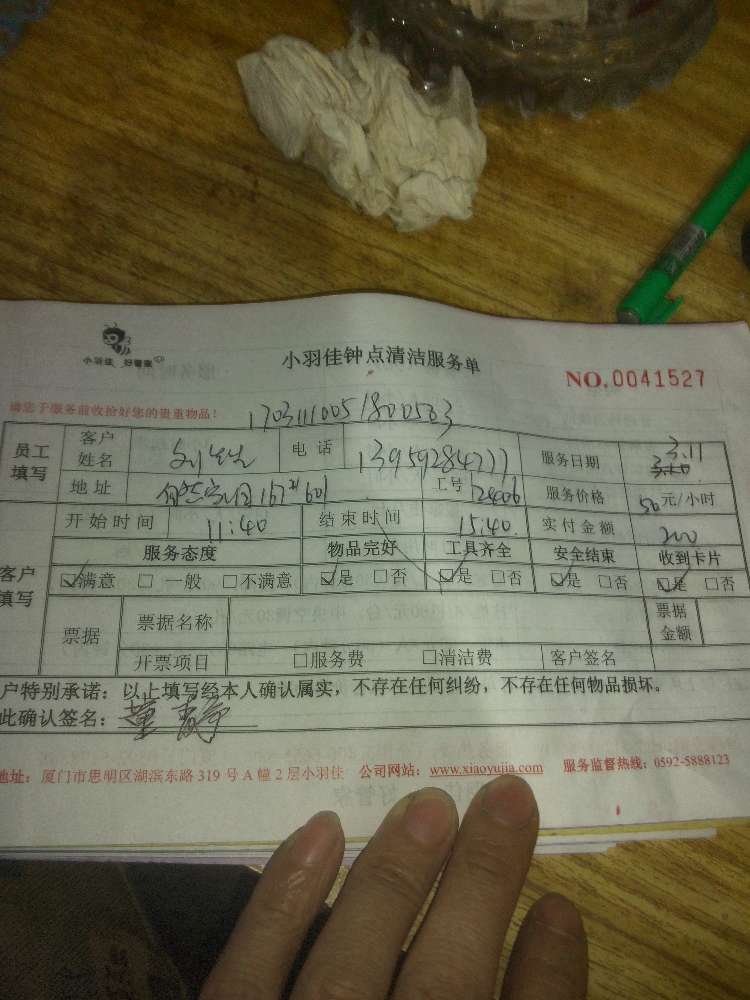 小羽佳 好管家
小羽佳钟点清洁服务单
NO.0041527
请您于服务前收拾好您的贵重物品!
17031110051800503
员工填写 客户姓名 刘先生 电话 13959284777 服务日期 3.10 3.11
地址 167# 601 工号 2406 服务价格 50元/小时
开始时间 11:40 结束时间 15:40 实付金额 200
客户填写 服务态度 物品完好 工具齐全 安全结束 收到卡片
☑满意 □一般 □不满意 ☑是 □否 ☑是 □否 ☑是 □否 ☑是 □否
票据 票据名称 票据金额
开票项目 □服务费 □清洁费 客户签名
户特别承诺:以上填写经本人确认属实,不存在任何纠纷,不存在任何物品损坏。
此确认签名:董
地址:厦门市思明区湖滨东路 319 号 A 幢 2 层小羽佳 公司网站:www.xiaoyujia.com 服务监督热线:0592-5888123